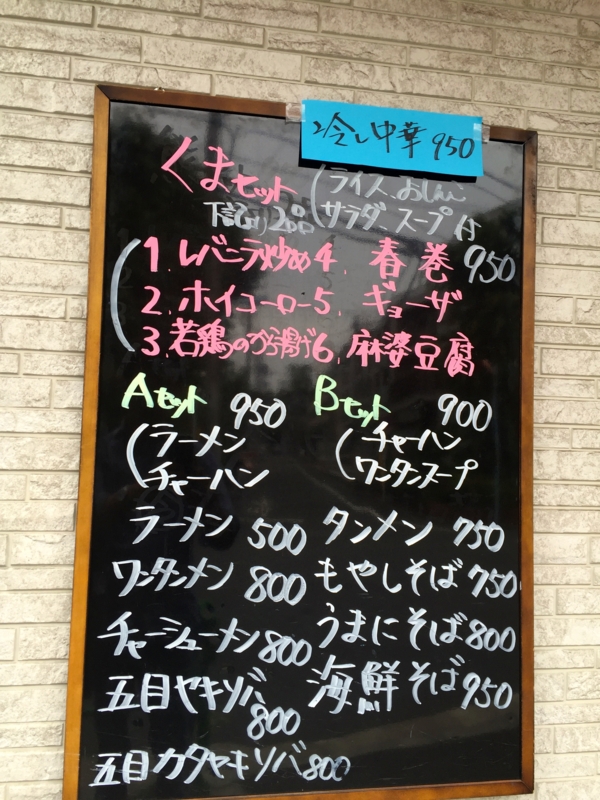 冷し中華 950
くまセット (ライス、おしんこ
下記より2品 サラダ、スープ付
1. レバニラ炒め 4. 春巻 950
2. ホイコーロー 5. ギョーザ
3. 若鶏のから揚げ 6. 麻婆豆腐
Aセット 950 Bセット 900
(ラーメン (チャーハン
チャーハン ワンタンスープ
ラーメン 500 タンメン 750
ワンタンメン 800 もやしそば 750
チャーシューメン 800 うまにそば 800
五目ヤキソバ 800 海鮮そば 950
五目カタヤキソバ 800